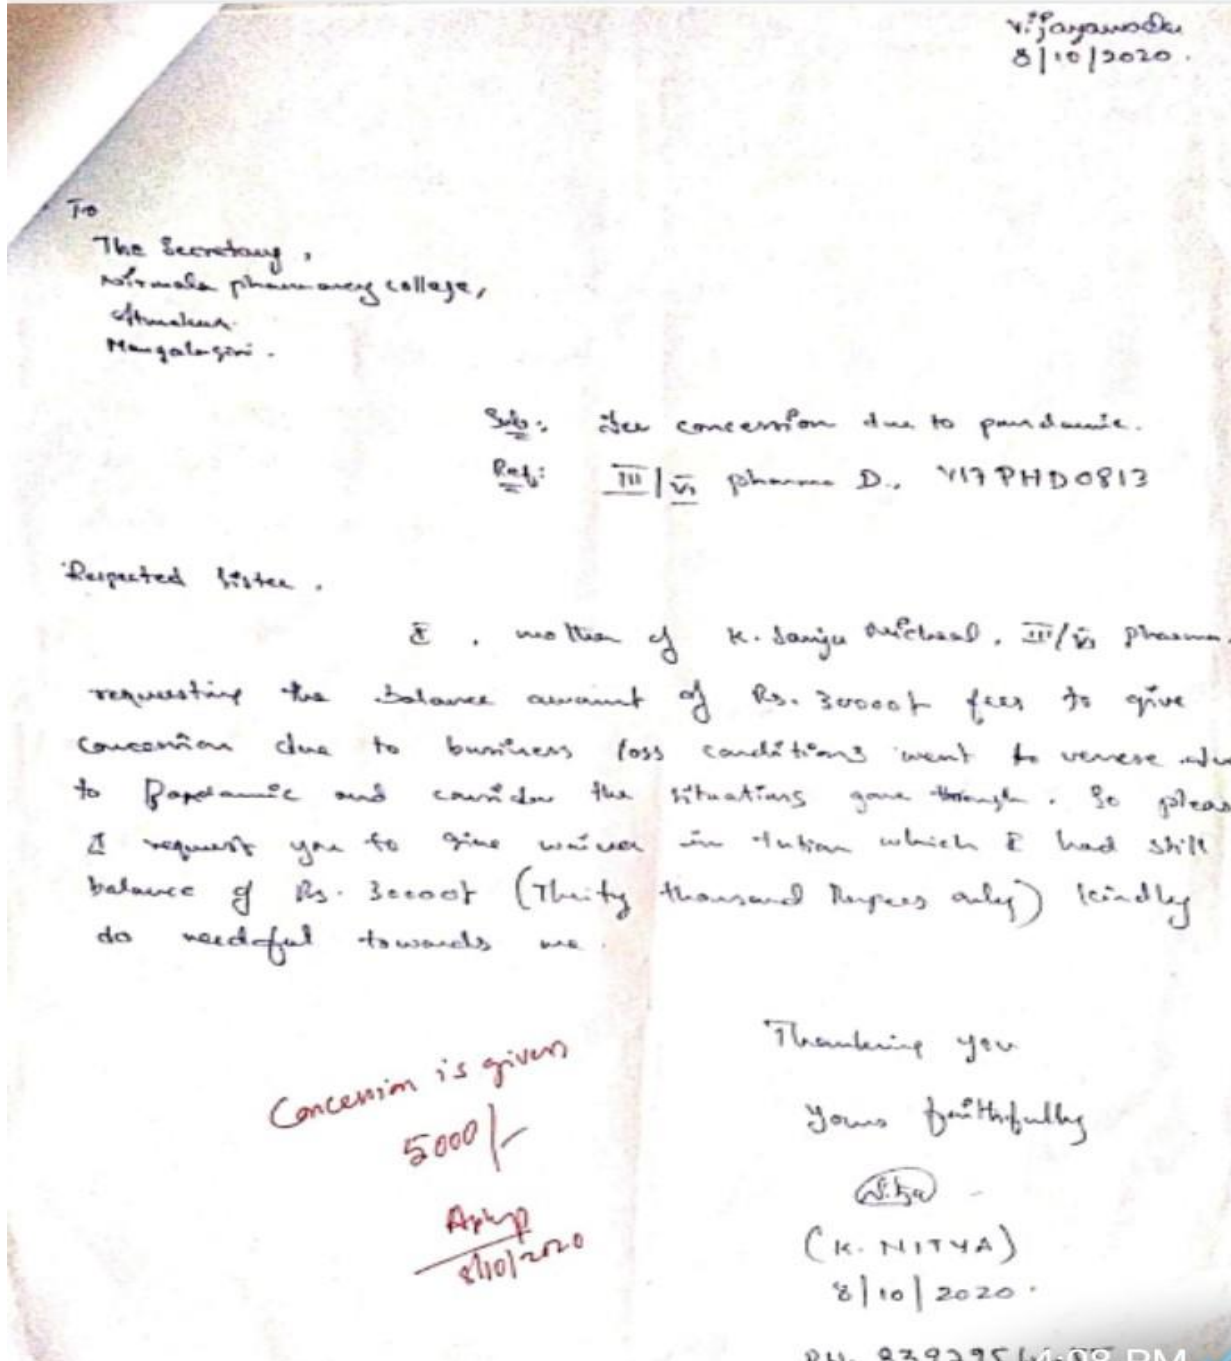 Vijayawada
8/10/2020.
To
The Secretary,
Nirmala pharmancy college,
Atmakur.
Mangalagiri.
Sub: Fee concession due to pandamic.
Ref: III/VI pharma D., Y17PHD0813
Respected Sister,
I, mother of K. Sanju Micheal, III/VI pharma.
requesting the balance amount of Rs. 30000/- fees to give
concession due to business loss conditions went to due
to Pandamic and consider the situations gone through. So pleas
I request you to give waiver in tution which I had still
balance of Rs. 30000/- (Thirty thousand Rupees only) kindly
do needful towards me.
Concession is given
5000/-
8/10/2020
Thanking you
Yours faithfully
(K. NITYA)
8/10/2020.
4:08 PM